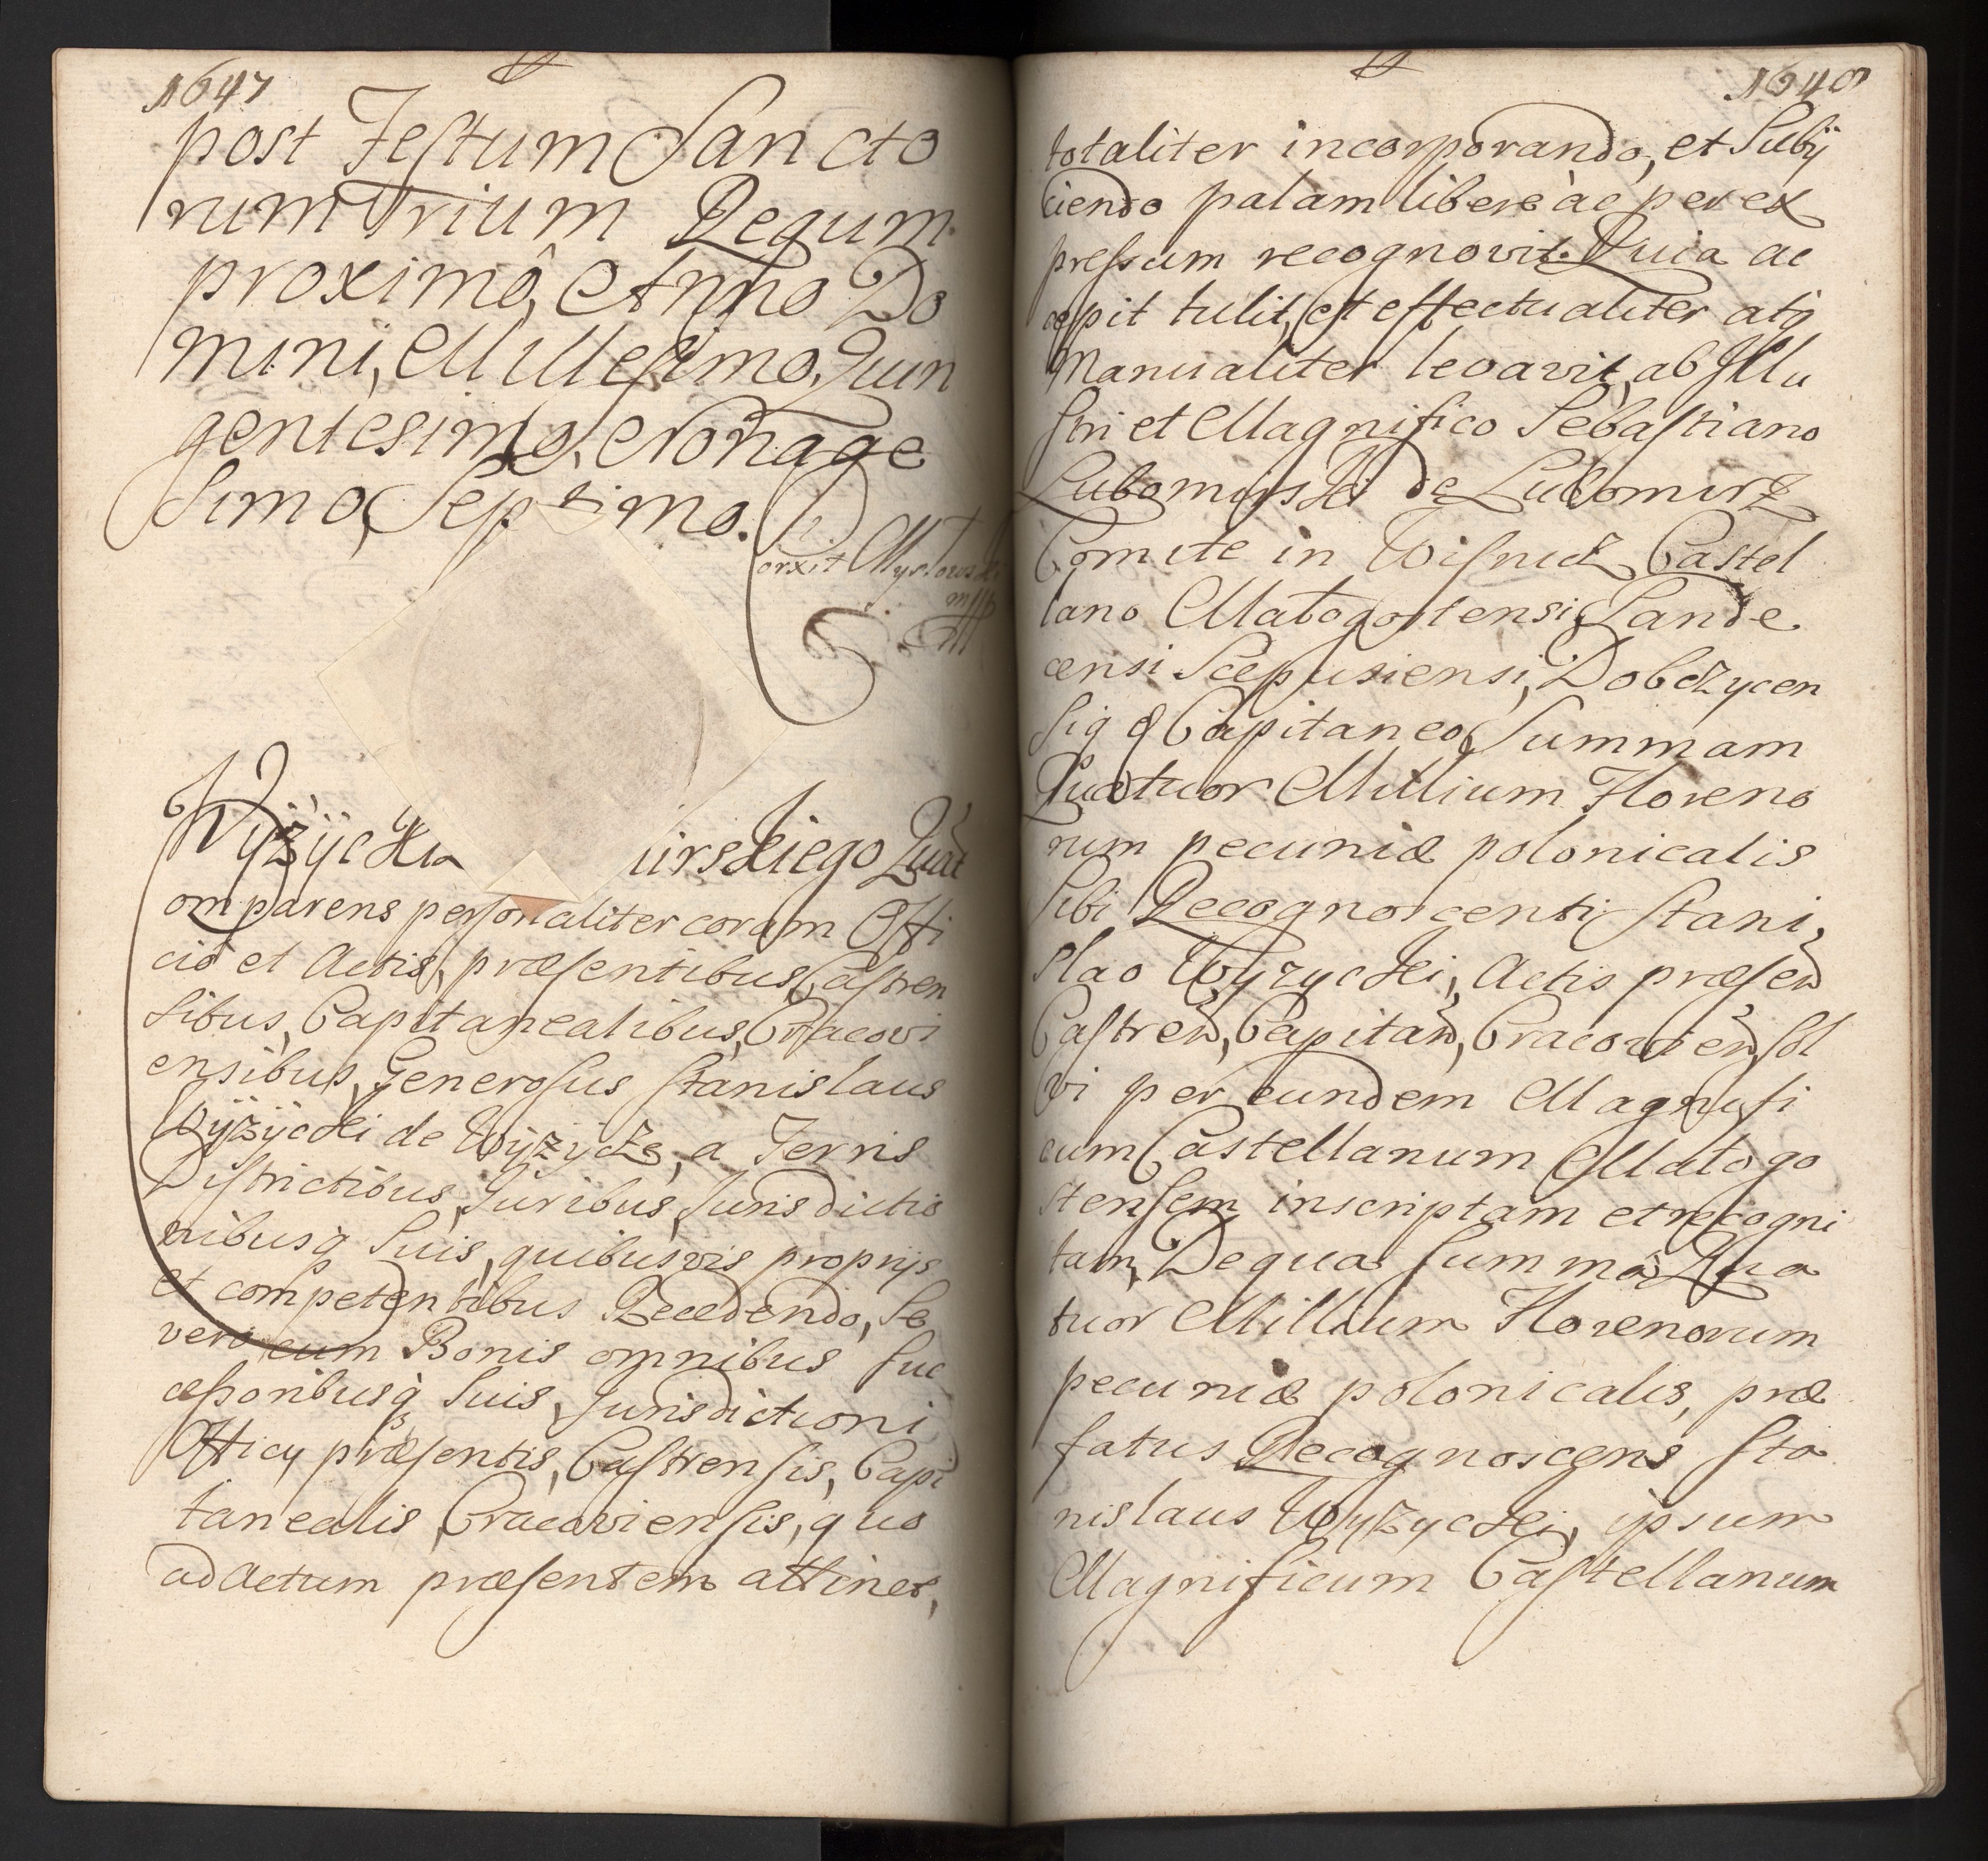 1647
post Festum Sancto
rum Trium Regum
proximô, Anno Do
mini, Millesimo, Quin
gentesimo, Nonage
simo, Septimo.
Wyżycki urskiego Quat
omparens personaliter coram Offi
cio et Actis, præsentibus, Castren
sibus, Capitanealibus, Cracovi
ensibus, Generosus Stanislaus
Wÿżÿcki de Wÿżÿcze, a Terris
Districtibus, Juribus, Jurisdictio
nibusq Suis, quibusvis proprijs
et competentibus Recedendo, Se
vero cum Bonis omnibus suc
cessoribusq Suis, Jurisdictioni
Officÿ præsentis, Castrensis, Capi
tanealis, Cracoviensis, quo
ad Actum præsentem attinet,
1648
totaliter incorporando, et Subij
ciendo palam libere ac per ex
pressum recognovit. Quia ac
cepit tulit, et effectualiter atq
Manualiter levavit, ab Illu
stri et Magnifico Sebastiano
Lubomirski de Lubomirz
Comite in Wisnicz, Castel
lano Małogostensi, Sande
censi Scepusiensi, Dobczycen
siq Capitaneo, Summam
Quatuor Millium Floreno
rum pecuniæ polonicalis
Sibi Recognoscenti Stani,
slao Wyzycki, Actis præsen
Castren, Capitan, Cracovien, sol
vi per eundem Magnifi
cum Castellanum Małogo
stensem inscriptam et recogni
tam, De qua summa, Qua
tuor Millium Florenorum
pecuniæ polonicalis, præ
fatus Recognoscens Sta
nislaus Wyzycki, ipsum
Magnificum Castellanum